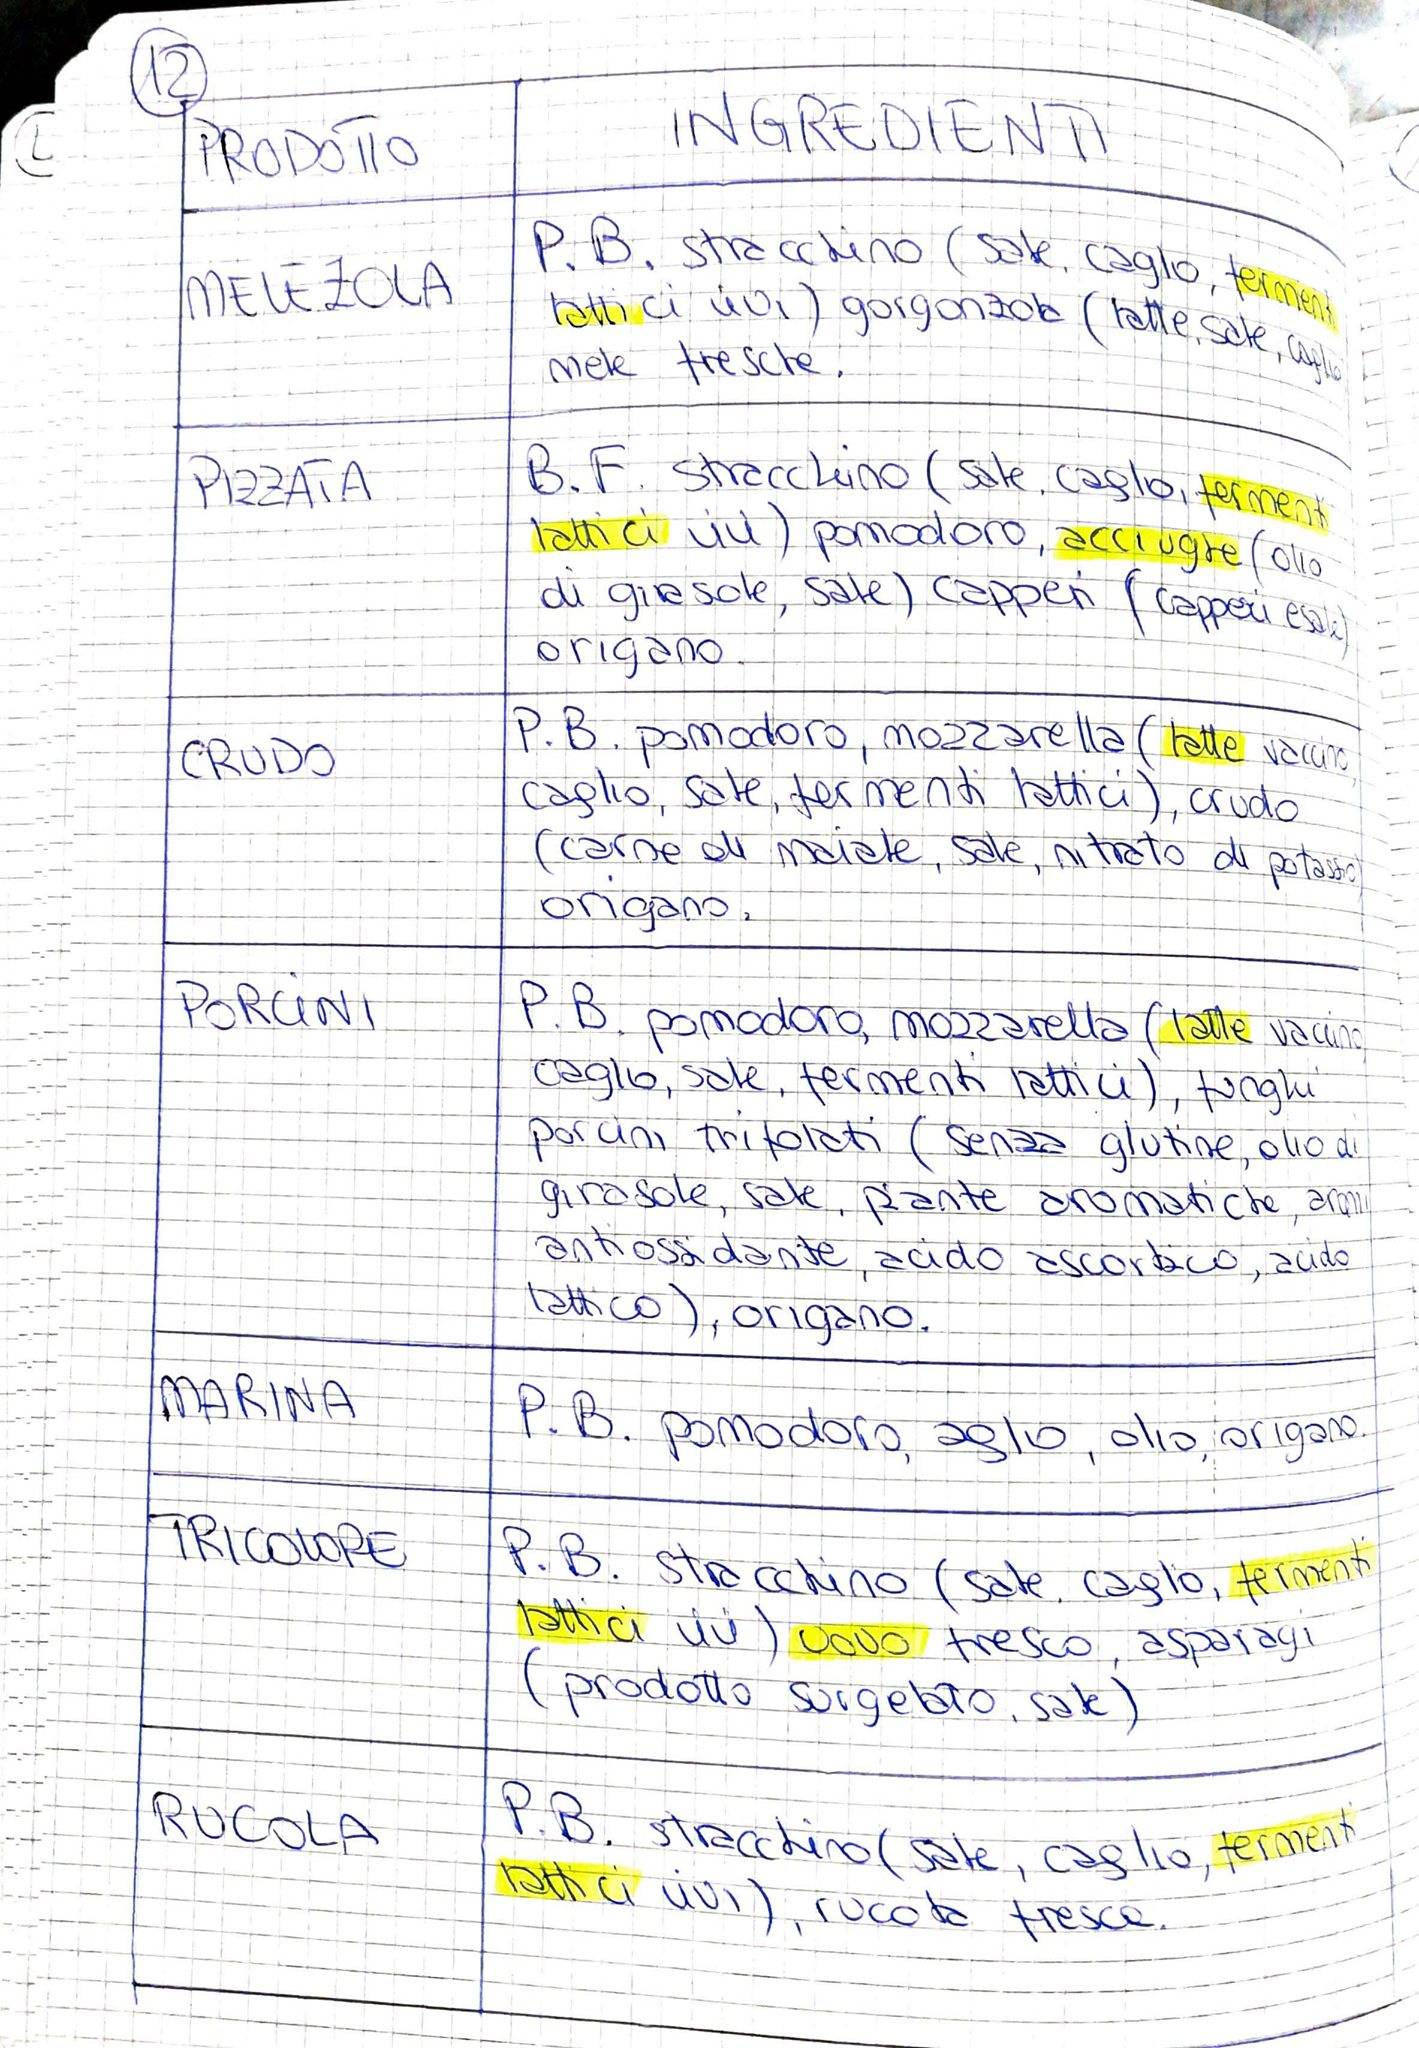 12
PRODOTTO
INGREDIENTI
MELEZOLA
P.B. stracchino (sale, caglio, fermenti
lattici vivi) gorgonzola (latte, sale, caglio
mele fresche.
PIZZATA
B.F. stracchino (sale, caglio, fermenti
lattici vivi) pomodoro, acciughe (olio
di girasole, sale) capperi (capperi e sale)
origano.
CRUDO
P.B. pomodoro, mozzarella (latte vaccino,
caglio, sale, fermenti lattici), crudo
(carne di maiale, sale, nitrato di potassio)
origano.
PORCINI
P.B. pomodoro, mozzarella (latte vaccino,
caglio, sale, fermenti lattici), funghi
porcini trifolati (senza glutine, olio di
girasole, sale, piante aromatiche, aromi
antiossidante, acido ascorbico, acido
lattico), origano.
MARINA
P.B. pomodoro, aglio, olio, origano.
TRICOLORE
P.B. stracchino (sale, caglio, fermenti
lattici vivi) uovo fresco, asparagi
(prodotto surgelato, sale)
RUCOLA
P.B. stracchino (sale, caglio, fermenti
lattici vivi), rucola fresca.